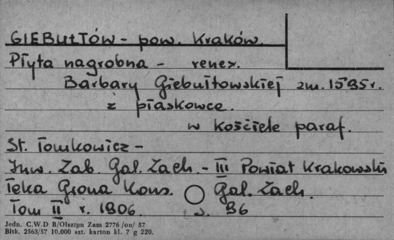 GIEBUŁTÓW - pow. Kraków.
Płyta nagrobna - renes.
Barbary Giebułtowskiej zm. 1595r.
z piaskowca.
w kościele paraf.
St. Tomkowicz -
Inw. Zab. Gal. Zach. - III Powiat Krakowski
Teka Grona Kons. Gal. Zach.
Tom II r. 1906. s. 96
Jedn. C.W.D B/Olsztyn Zam 2776/nn/ 57
Bltk. 2563/57 10.000 szt. karton kl. 7 g 220.